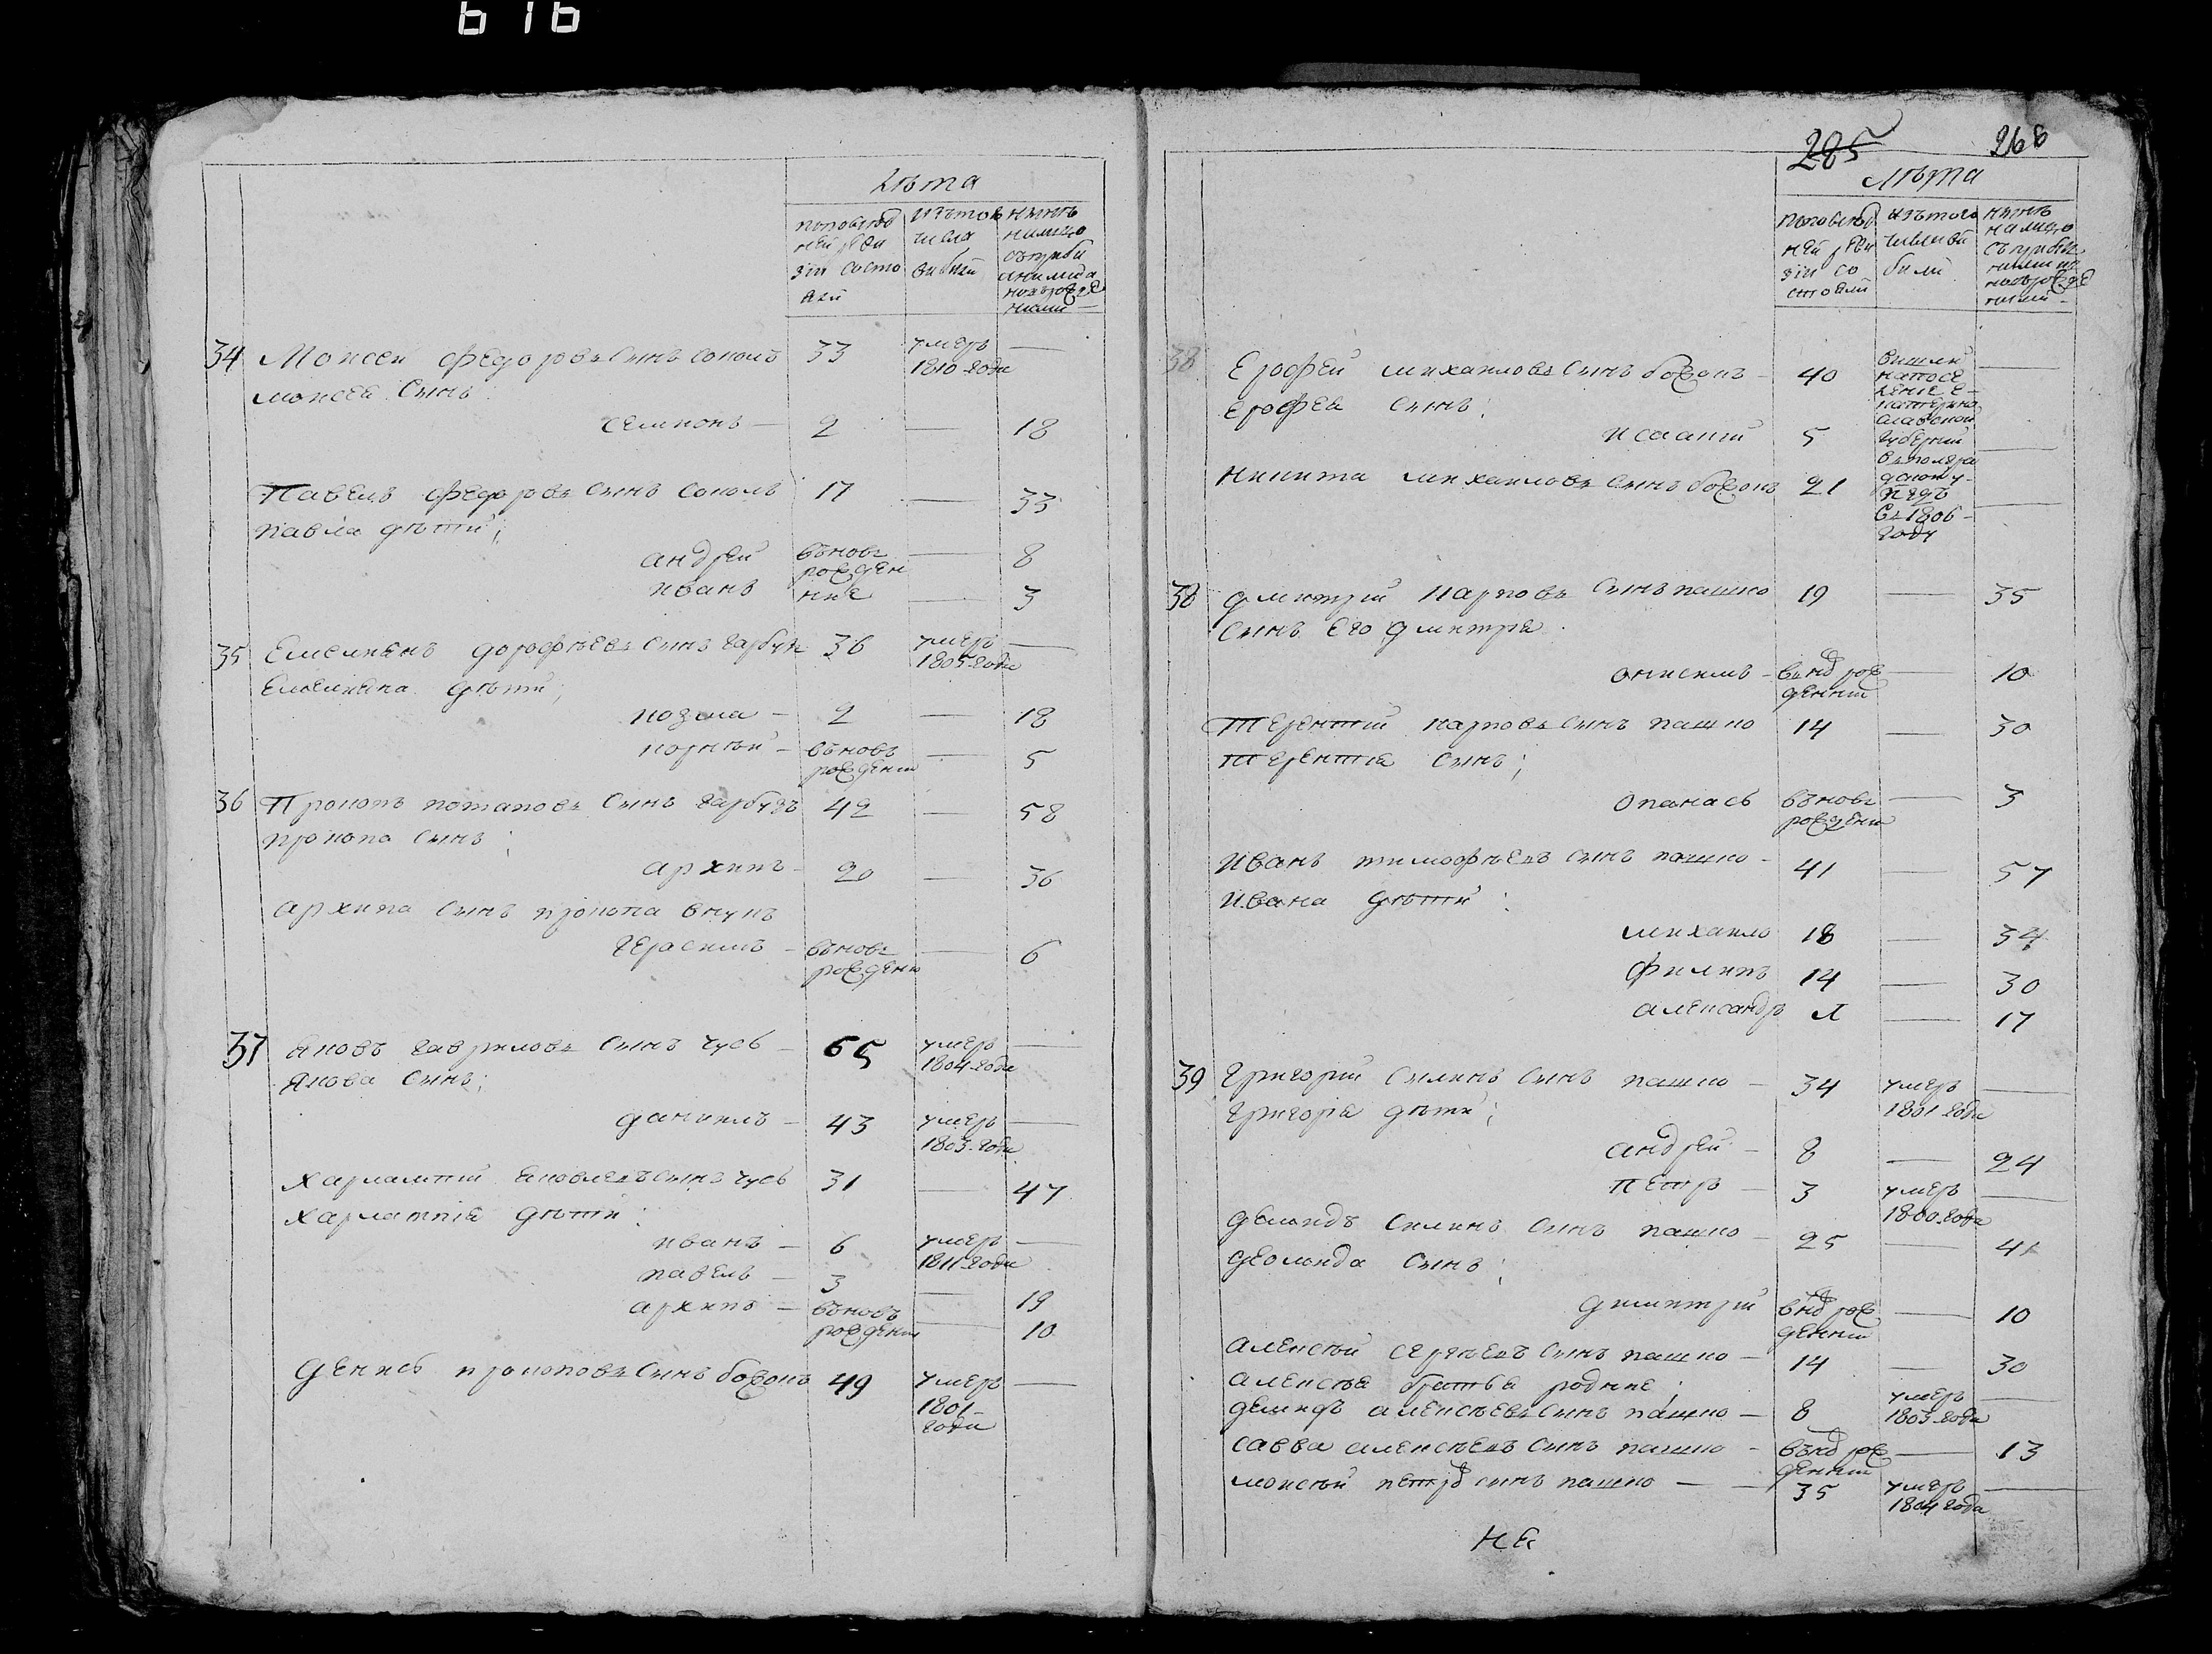 616
Лѣта
поповѣрѣд
ней реви
зіи состо
яли
изъ того
числа
выбыли
нынѣ
налицо
34 Моисей Федоровъ сынъ Соколъ 33 умеръ —
1810 года
Моисея сынъ:
Семионъ — 2 — 18
Павелъ Федоровъ сынъ Соколъ 17 — 33
Павла дѣти;
Андрей вьновь — 8
рожден
Иванъ ные — 3
35 Емелиянъ Дорофѣевъ сынъ Гарбузъ 36 умеръ —
1805 года
Емелияна дѣти;
Козма — 2 — 18
Корнѣй — вьновь — 5
рождены
36 Прокопъ Потаповъ сынъ Гарбузъ 42 — 58
Прокопа сынъ;
Архипъ — 20 — 36
Архипа сынъ Прокопа внукъ
Герасимъ — вьновь — 6
рождены
37 Яковъ Гавриловъ сынъ Чусь — 65 умеръ —
1804 года
Якова сынъ;
Данилъ — 43 умеръ —
1803 года
Харлампий Яковлевъ сынъ Чусь 31 — 47
Харлампия дѣти:
Иванъ — 6 умеръ —
1811 года
Павелъ — 3 — 19
Архипъ — вьновь — 10
рождены
Денисъ Прокоповъ сынъ Божокъ 49 умеръ —
1801
года
285 266
Лѣта
ней реви
зіи со
стояли
изъ того
были
нынѣ
налицо
38 Ерофей Михаиловъ сынъ Божокъ — 40 вышли —
на посе
ление е
катерино
славской
губернии
Ерофея сынъ;
Исаакий 5 —
Никита Михаиловъ сынъ Божокъ 21 —
въ 1806
году
38 Дмитрий Карповъ сынъ Пашко 19 — 35
Сынъ его Дмитрия
Онисимъ — вьнов рож — 10
денный
Терентий Карповъ сынъ Пашко 14 — 30
Терентия сынъ;
Опанасъ вьновь — 3
рождены
Иванъ Тимофѣевъ сынъ Пашко — 41 — 57
Ивана дѣти:
Михаило 18 — 34
Филипъ 14 — 30
Александръ 1 — 17
39 Григорий Силинъ сынъ Пашко — 34 умеръ —
1801 года
Григория дѣти;
Андрей — 8 — 24
Петръ — 3 умеръ —
1800 года
Демидъ Силинъ сынъ Пашко — 25 — 41
сынъ;
Димитрий внов рож — 10
денный
Алексѣй Сергѣевъ сынъ Пашко — 14 — 30
Алексѣя братья родные;
Демидъ Алексѣевъ сынъ Пашко — 8 умеръ —
1803 года
Савва Алексѣевъ сынъ Пашко — вьнов рож — 13
денный
Моисѣй Петров сынъ Пашко — 35 умеръ —
1804 года